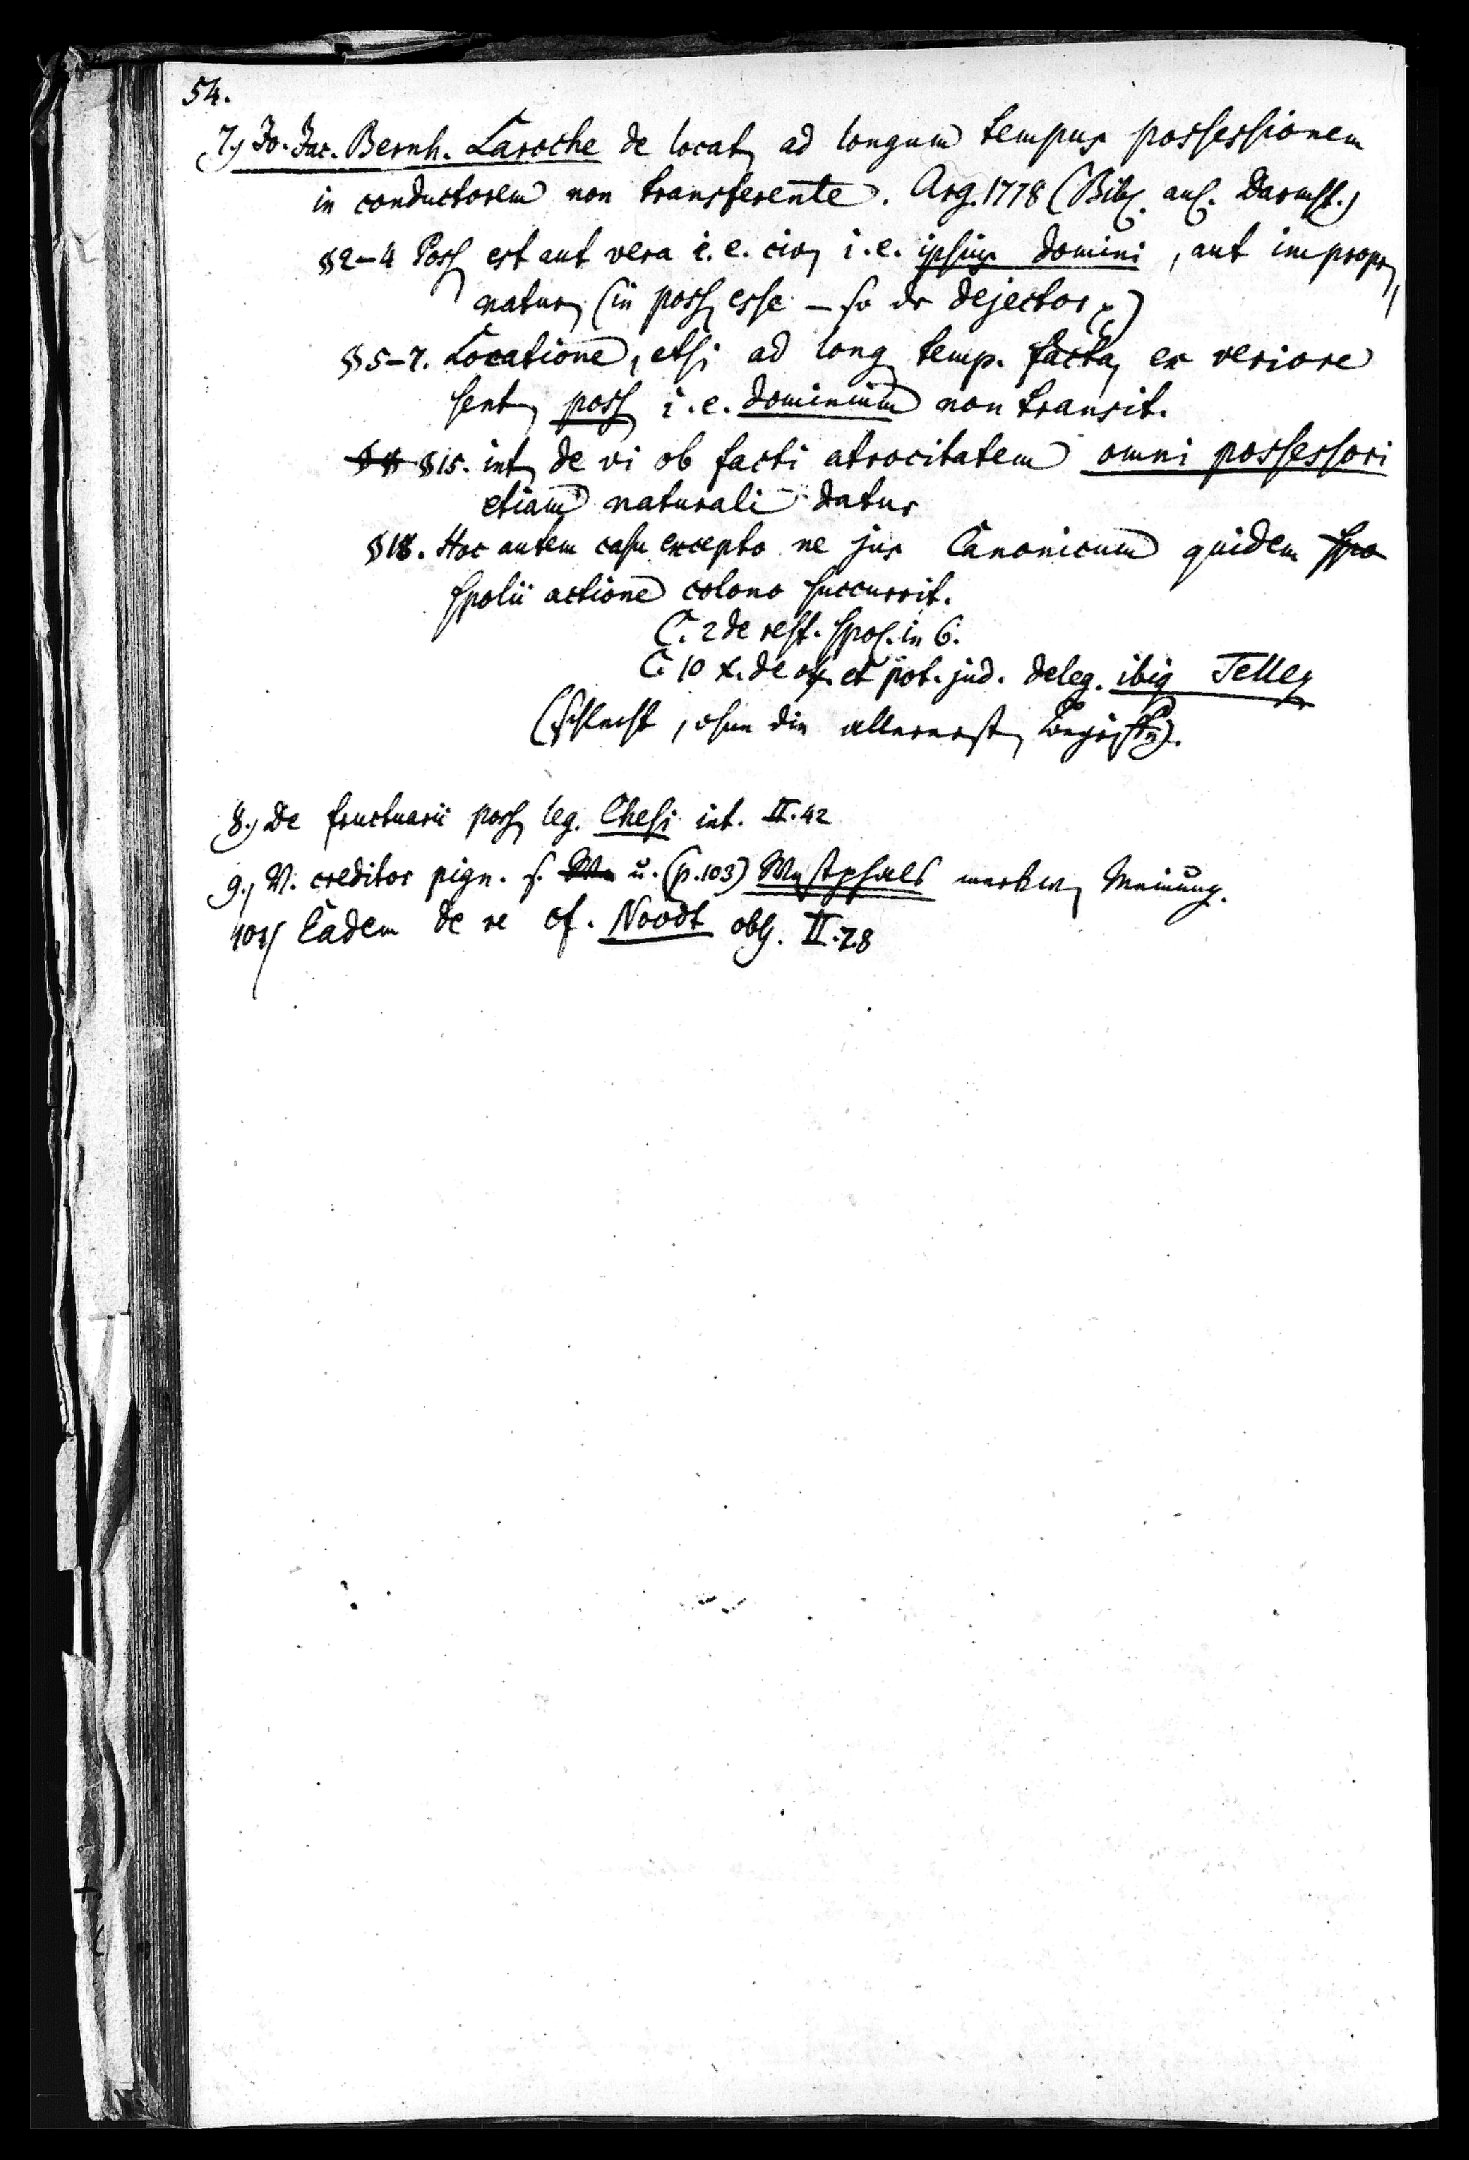 54.
7.) Jo. Jac. Bernh. Laroche de locat. ad longum tempus possessionem
in conductorem non transferente. Arg. 1778 (Bibl. aul. Darmst.)
§2–4 Poss. est aut vera i.e. civ. i.e. ipsius domini, aut impropr.,
natur. (in poss. esse – so der dejector)
§5–7. Locatione, etsi ad long. temp. facta, ex veriore
sent. poss. i.e. dominium non transit.
§15. int. de vi ob facti atrocitatem omni possessori
etiam naturali datur
§18. Hoc autem casu excepto ne jus Canonicum quidem spo
spolii actione colono succurrit.
C. 2 de rest. spol. in 6.
C. 10 X. de off. et pot. jud. deleg. ibiq. Tellez
(schlecht, ohne die allerersten Begriffe).
8.) De fructuarii poss. leg. Chesi int. II. 42
9.) V. creditor pign. s. u. (p. 103) Westphals merkw. Meinung.
10.) Eadem de re cf. Noodt obs. II. 7.8